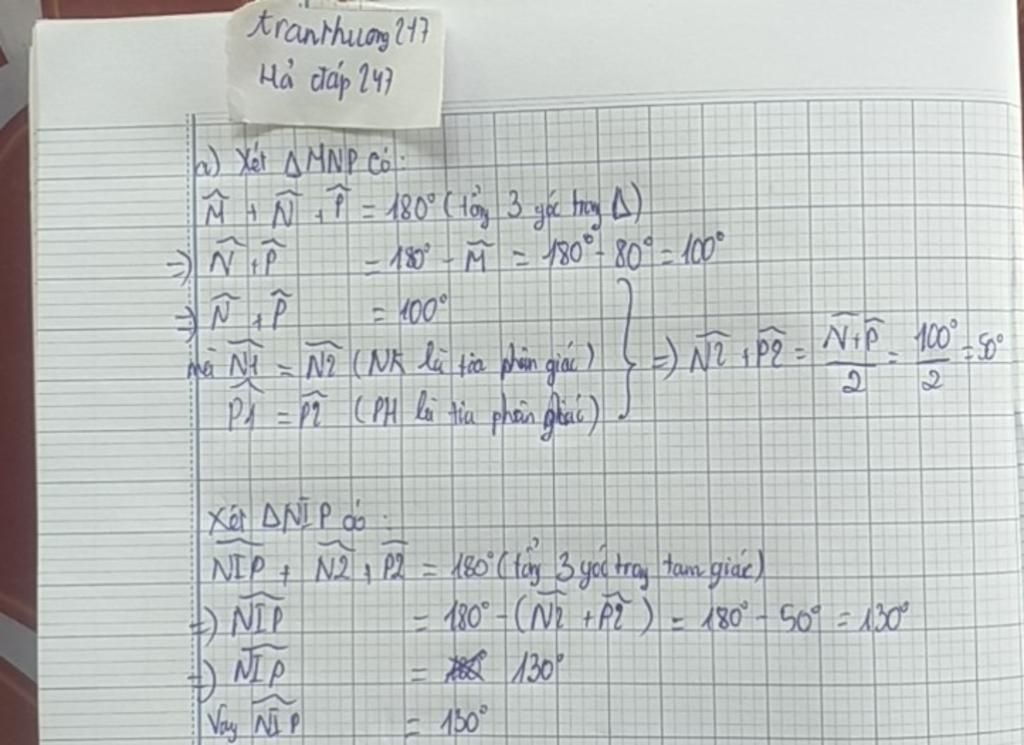 tranthuong217
Hỏi đáp 247
a) Xét ΔMNP có:
M̂ + N̂ + P̂ = 180° (tổng 3 góc trong Δ)
=> N̂ + P̂ = 180° - M̂ = 180° - 80° = 100°
=> N̂ + P̂ = 100°
mà N̂1 = N̂2 (NK là tia phân giác)
P̂1 = P̂2 (PH là tia phân giác)
} => N̂2 + P̂2 = (N̂+P̂)/2 = 100°/2 = 50°
Xét ΔNIP có:
N͡IP + N̂2 + P̂2 = 180° (tổng 3 góc trong tam giác)
=> N͡IP = 180° - (N̂2 + P̂2) = 180° - 50° = 130°
=> N͡IP = 130°
Vậy N͡IP = 130°